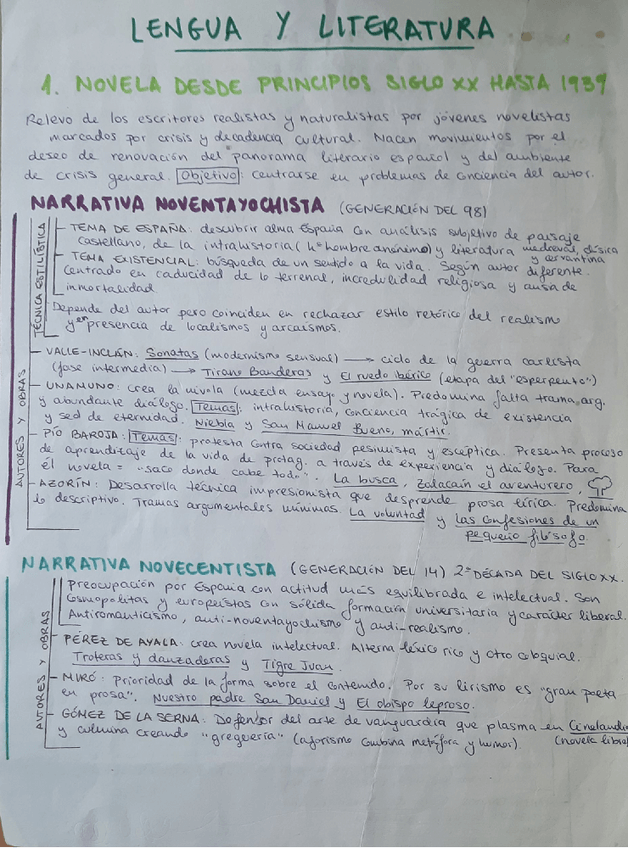 LENGUA Y LITERATURA
1. NOVELA DESDE PRINCIPIOS SIGLO XX HASTA 1939
Relevo de los escritores realistas y naturalistas por jóvenes novelistas
marcados por crisis y decadencia cultural. Nacen movimientos por el
deseo de renovación del panorama literario español y del ambiente
de crisis general. Objetivo: centrarse en problemas de conciencia del autor.
NARRATIVA NOVENTAYOCHISTA (GENERACIÓN DEL 98)
TÉCNICA ESTILÍSTICA
- TEMA DE ESPAÑA: descubrir alma España con análisis subjetivo de paisaje
castellano, de la intrahistoria (hombre anónimo) y literatura medieval, clásica
y cervantina
- TEMA EXISTENCIAL: búsqueda de un sentido a la vida. Según autor diferente.
Centrado en caducidad de lo terrenal, incredulidad religiosa y ansia de
inmortalidad
Depende del autor pero coinciden en rechazar estilo retórico del realismo
y en presencia de localismos y arcaismos.
AUTORES Y OBRAS
- VALLE-INCLÁN: Sonatas (modernismo sensual) → ciclo de la guerra carlista
(fase intermedia) → Tirano Banderas y El ruedo ibérico (etapa del "esperpento")
- UNAMUNO: crea la nivola (mezcla ensayo y novela). Predomina falta trama, arg.
y abundante diálogo. Temas: intrahistoria, conciencia trágica de existencia
y sed de eternidad. Niebla y San Manuel Bueno, mártir.
- PÍO BAROJA: Temas: protesta contra sociedad pesimista y escéptica. Presenta proceso
de aprendizaje de la vida de protag. a través de experiencia y diálogo. Para
él novela = "saco donde cabe todo". La busca, Zalacaín el aventurero,
- AZORÍN: Desarrolla técnica impresionista que desprende prosa lírica. Predomina
lo descriptivo. Tramas argumentales mínimas. La voluntad y las confesiones de un
pequeño filósofo
NARRATIVA NOVECENTISTA (GENERACIÓN DEL 14) 2ª DÉCADA DEL SIGLO XX.
Preocupación por España con actitud más equilibrada e intelectual. Son
cosmopolitas y europeístas con sólida formación universitaria y carácter liberal.
Antiromanticismo, anti-noventayochismo y anti-realismo.
AUTORES Y OBRAS
- PÉREZ DE AYALA: crea novela intelectual. Alterna léxico rico y otro coloquial.
Troteras y danzaderas y Tigre Juan.
- MIRÓ: Prioridad de la forma sobre el contenido. Por su lirismo es "gran poeta
en prosa". Nuestro padre San Daniel y El obispo leproso.
- GÓMEZ DE LA SERNA: Defensor del arte de vanguardia que plasma en Cinelandia
y culmina creando "greguería" (aforismo combina metáfora y humor). (novela libre)